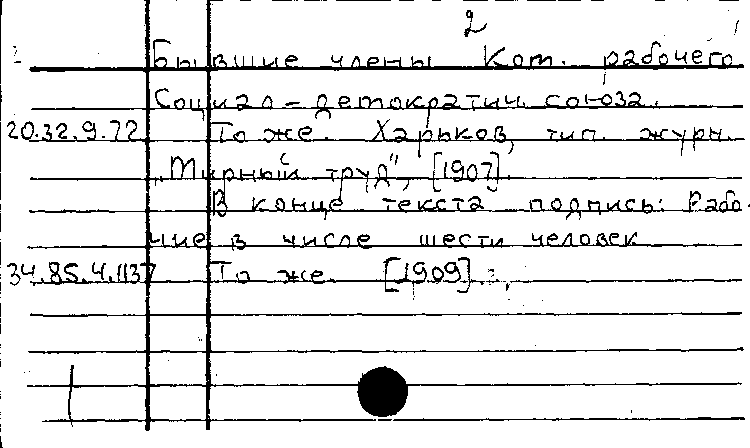 2
Бывшие члены Ком. рабочего
Социал-демократич. союза.
20.32.9.72 То же. Харьков, тип. журн.
„Мирный труд", [1907].
В конце текста подпись: Рабо-
чие в числе шести человек
34.85.4.1137 То же. [1909].